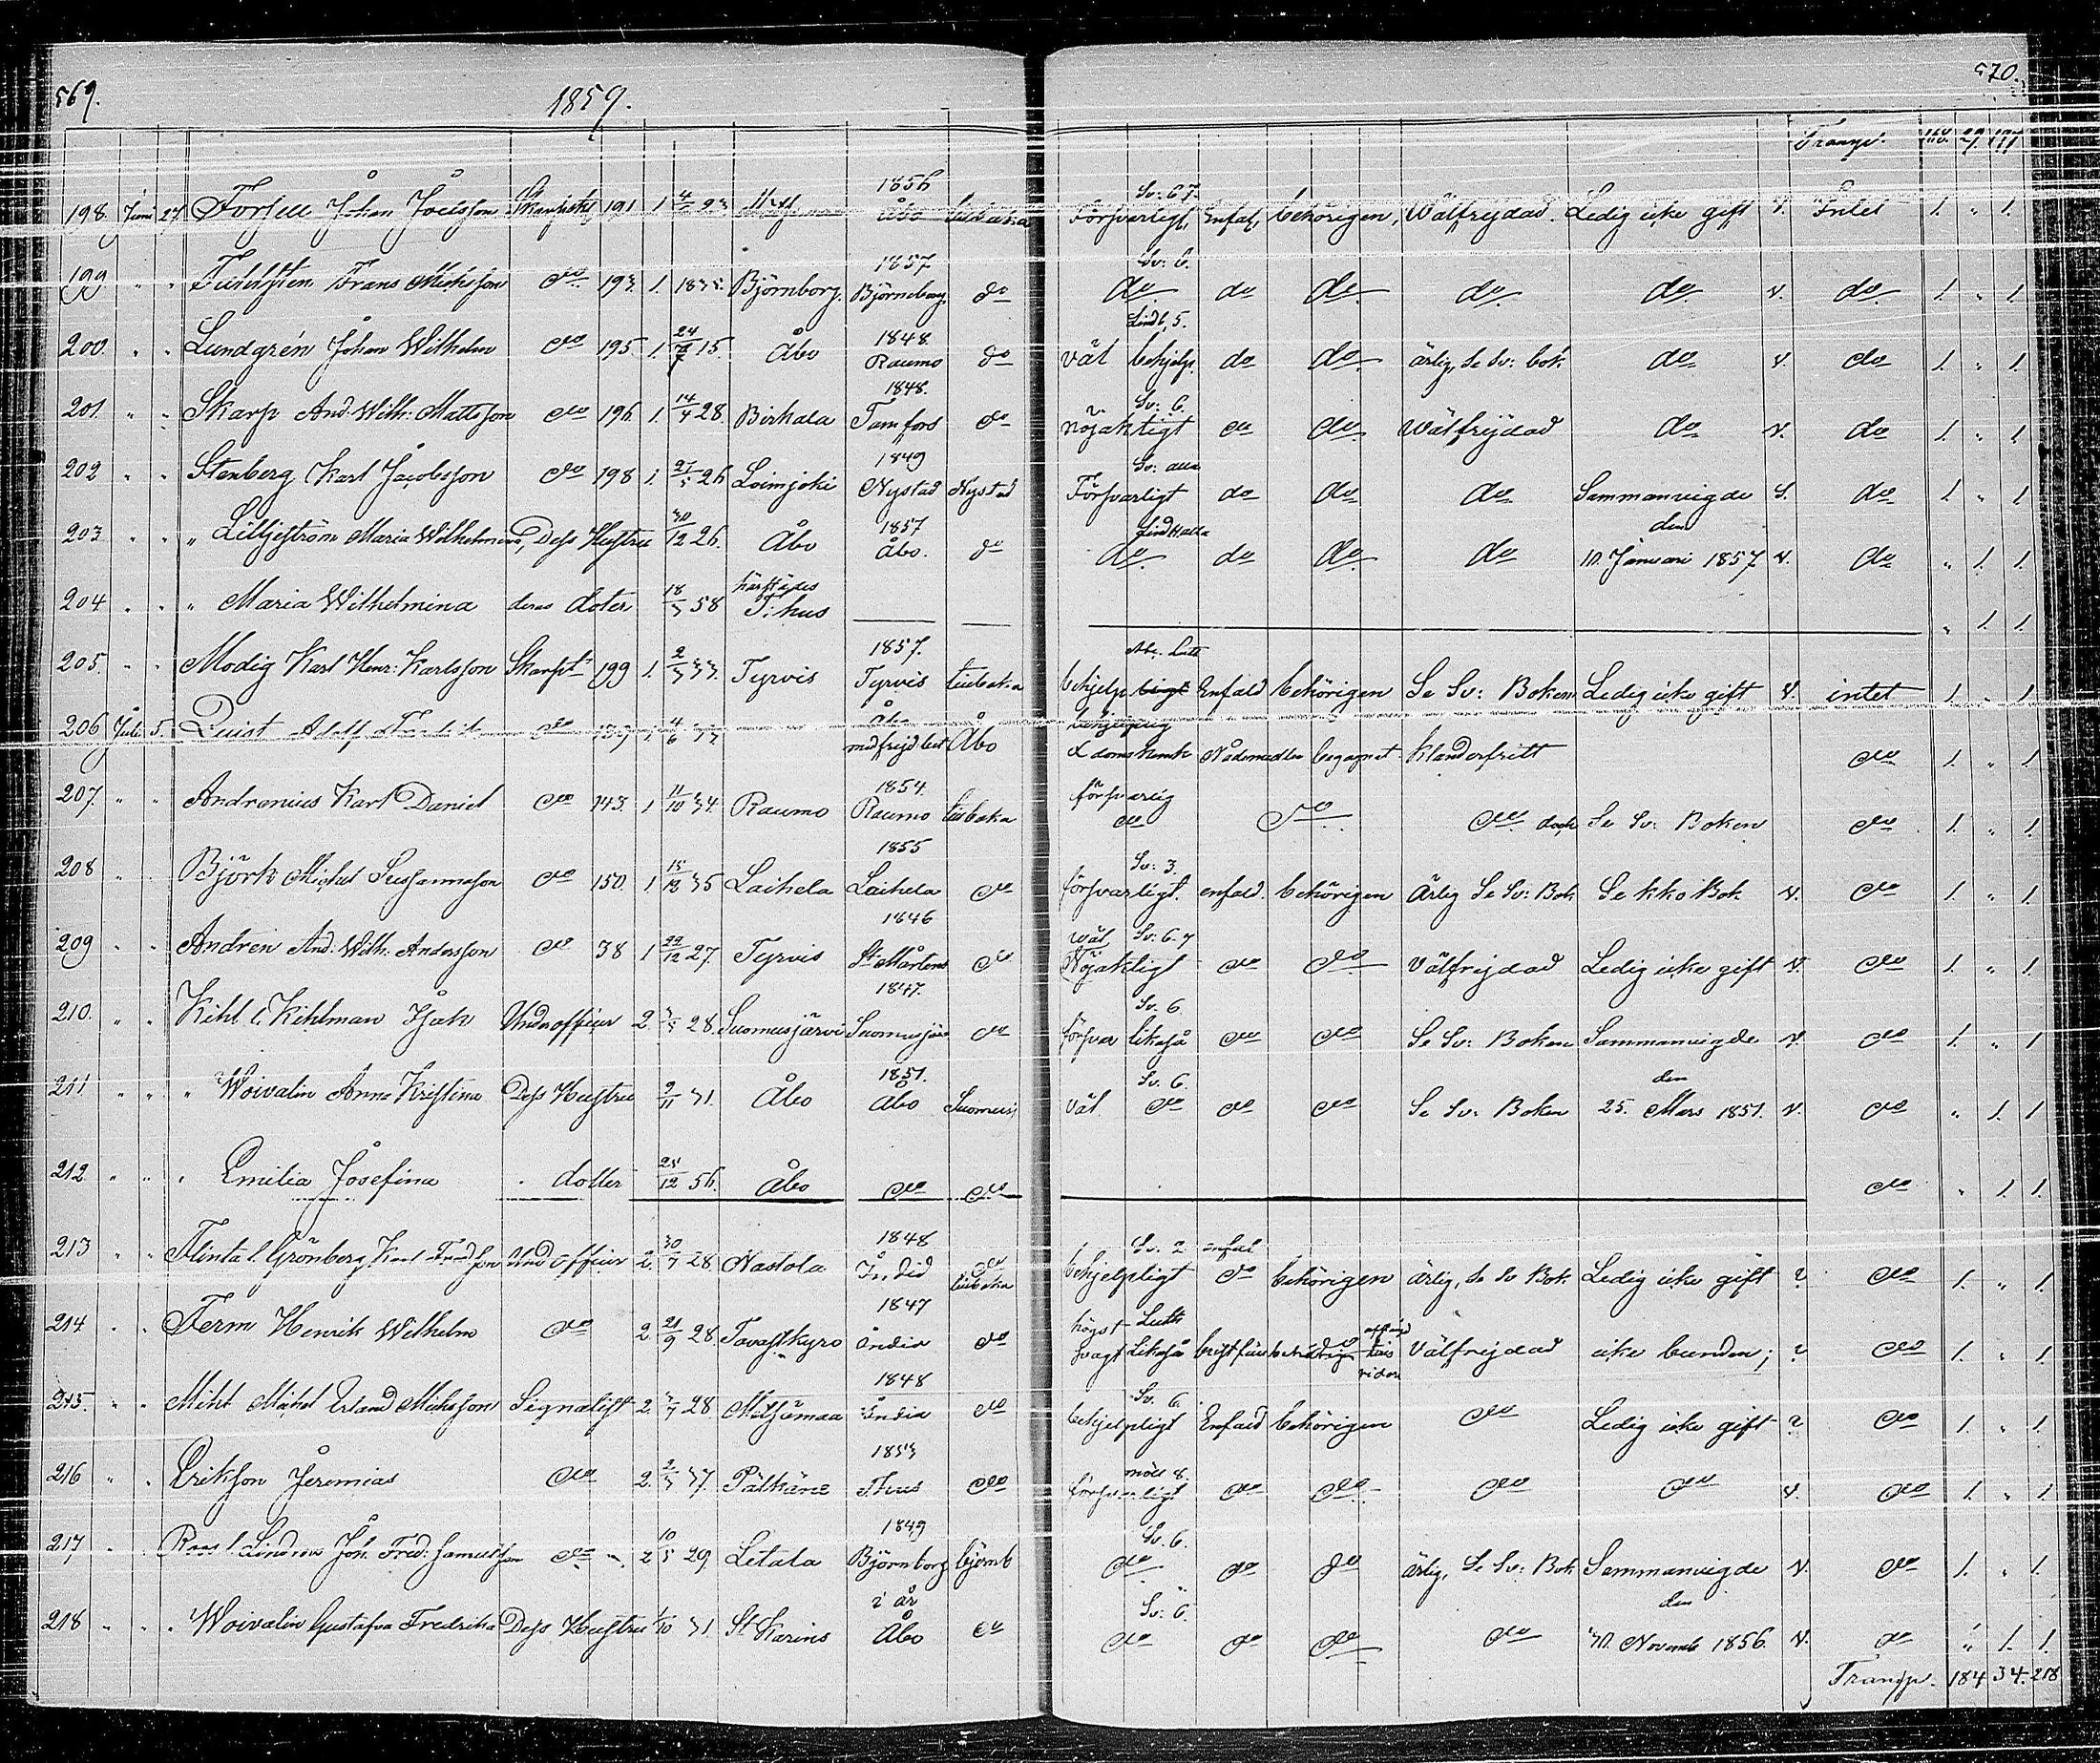 569. 1859. 570.
Transp. 168. 29. 197
198. Juni 27 Forsell Johan Joelsson Skarpskt 191 1 4 23 1856 Åbo tillbaka Sv: 6 7. Försvarligt, Enfal, behörigen, Wälfrejdad. Ledig icke gift v. Intet 1. " 1.
199 " " Frans Michsson do 193. 1. 1835. Björnborg. 1857 Björneborg do Sv: 6. do do do do do v. do 1. " 1
200. " " Lundgrén Johan Wilhelm do 195. 1. 24/7 15. Åbo 1848 Raumo do Lindb, 5. väl behjelp. do do ärlig, Se Sv: bok do v. do 1. " 1
201. " " Skarp And. Wilh: Mattsson do 196 1. 14/4 28. Birkala 1848. Tamfors do Sv: 6. nöjaktigt do do wälfrejdad do v. do 1. " 1
202 " " Stenberg Karl Jacobsson do 198 1. 27/5 26 Loimjoki 1849 Nystad Nystad Sv: alla Försvarligt do do do Sammanvigde v. do 1. " 1
203. " " " Lilljeström Maria Wilhelmina, Dess Hustru 30/12 26. Åbo 1857 Åbo. do Lindb. alla do do do do den 10. Januari 1857 v. do " 1. 1
204 " " " Maria Wilhelmina deras doter 18/3 58 härstädes T: hus " 1. 1.
205. " " Modig Karl Henr: Karlsson Skarpt 199 1. 2/3 33. Tyrvis 1857. Tyrvis tillbaka Abc. Luth behjelp ligt Enfald behörigen Se Sv: Boken Ledig icke gift v. intet 1. " 1
206 Juli 5. Quist Adolf Fredrik do 139 1 4/6 33 Åbo med frejd bet Åbo behjelplig Nådemedlen begagnat klanderfritt do 1. " 1
207. " " Andronius Karl Daniel do 143. 1 11/10 34. Raumo 1854. Raumo tillbaka försvarlig do do do dock Se Sv: Boken do 1. " 1.
208 " " Björk Michel Sussannason do 150. 1 15/12 35 Laihela 1855 Laihela do Sv: 3. försvarligt. enfald. behörigen Ärlig Se Sv: Bok Se kko Bok v. do 1. " 1.
209 " " Andrén And: Wilh: Andersson do 38 1 22/12 27. Tyrvis 1846 St Mårtens do wäl Sv: 6-7 Nöjaktigt do do Välfrejdad Ledig icke gift v. do 1. " 1.
210. " " Kihl l. Kihlman Isak Underofficer 2. 3/5 28. Suomusjärvi 1847. Suomusjär do Sv. 6 försvar likaså do do Se Sv: Boken Sammanvigde v. do 1. " 1
211 " " " Woivalin Anna Kristina Dess Hustru 9/11 31. Åbo 1851. Åbo Suomusj Sv. 6. väl do do do Se Sv: Boken den 25. Mars 1851. v. do " 1. 1
212. " " " Emilia Josefina dotter 25/12 56. Åbo do do do " 1. 1.
213 " " Flinta l. Grönberg Karl Fredsson Und Officer 2. 30/7 28. Nastola 1848 Indid do tillbaka Sv: 2 enfal behjelpligt do behörigen ärlig, Se Sv Bok Ledig icke gift ? do 1. " 1.
214 " " Ferm Henrik Wilhelm do 2. 21/9 28. Tavastkyro 1847 India do högst Luth svagt Likaså Välfrejdad icke bunden; ? do 1. " 1.
215. " " Miht Michel Erland Michsson Signalist 2. 3/7 28. Mitjämaa 1848 India do Sv. 6. behjelpligt Enfald behörigen do Ledig icke gift ? do 1. " 1
216 " " Erikson Jeremias do 2. 2/3 37. Pälkäne 1853 T.hus do möll 8. försvarligt do do do do v. do 1. " 1.
217 " Roos l Lindroos Joh. Fred: Samuelsson do 2 10/5 29. Letala 1849 Björnborg björnb Sv. 6. do do do ärlig, Se Sv: Bok Sammanvigde v. do 1. " 1.
218 " " " Woivalin Gustafva Fredrika Dess Hustru 1/10 31 St Karins i år Åbo do Sv: 6. do do do do den 30. Novemb 1856. v. do " 1. 1
Transp. 184 34. 218